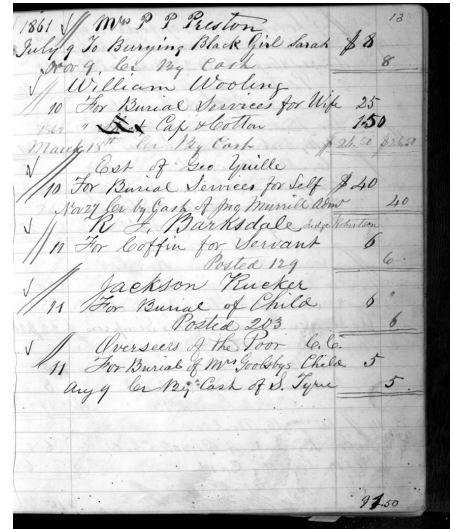 13
1861 Mrs P P Preston
July 9 To Burying Black Girl Sarah $8
Nov 9, Cr By Cash 8
William Wooling
10 For Burial Services for Wife 25
" Cap & Cotton 1.50
March 18th Cr By Cash $26.50 $26.50
Est of Geo Yuille
10 For Burial Services for Self $40
Nov 27 Cr by Cash of Jno Murrill Admr 40
R. L. Barksdale Judge Robertson
11 For Coffin for Servant 6
Posted 129 6
Jackson Rucker
11 For Burial of Child 6
Posted 203 6
Overseers of the Poor C.C.
11 For Burial of Mrs Goolsbys Child 5
Aug 9 Cr By Cash of S. Tyree 5
91.50